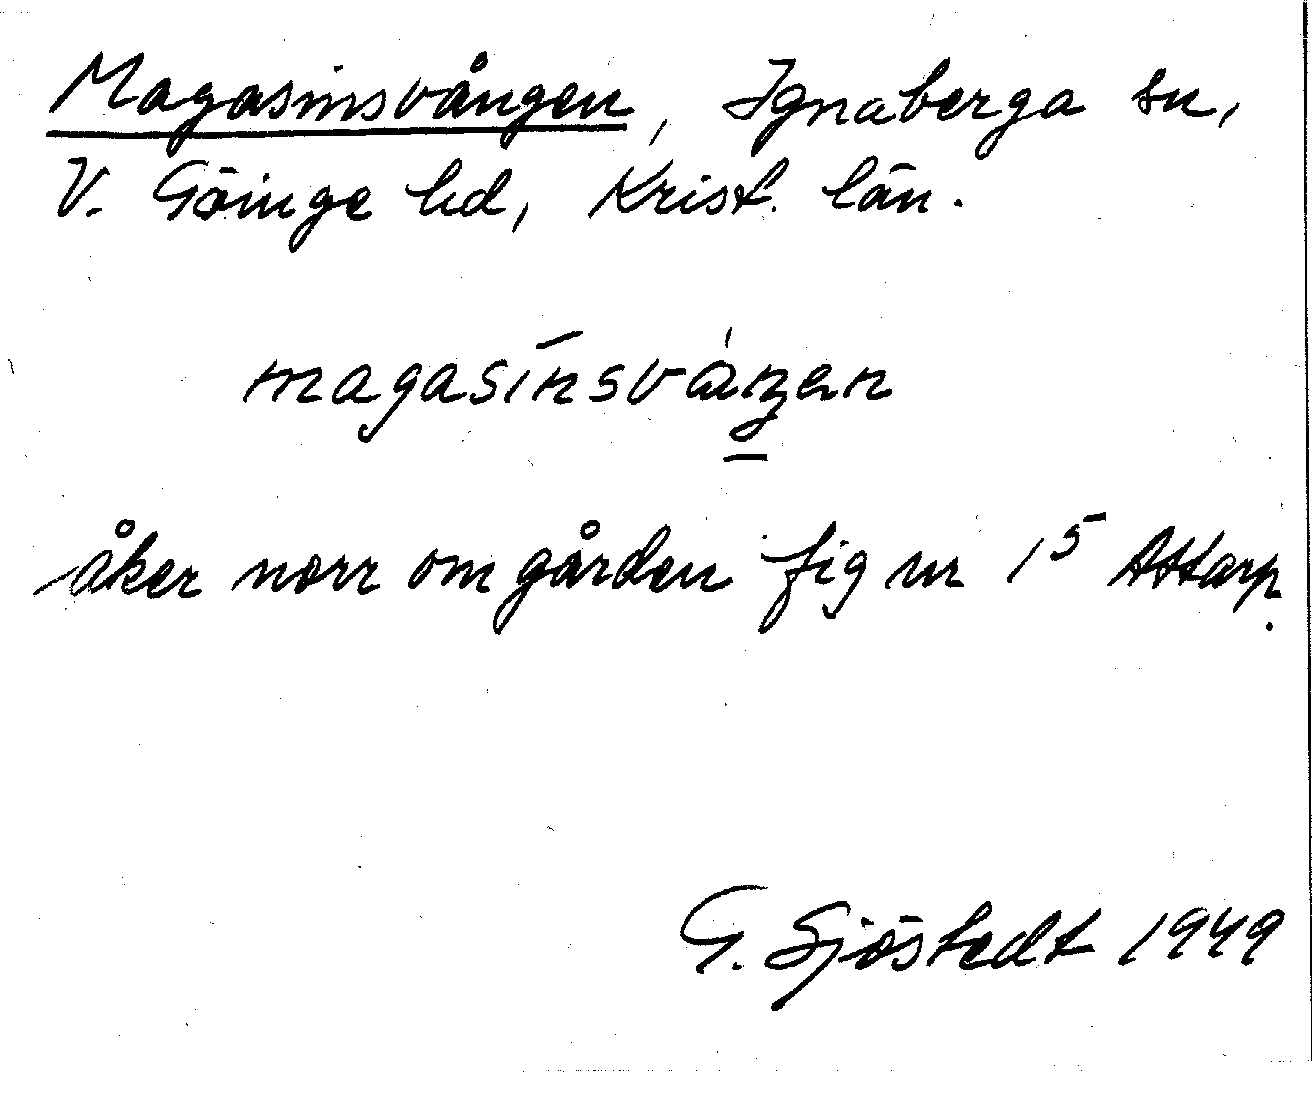 Magasinsvången, Ignaberga sn,
V. Göinge hd, Krist. län.
magasīnsvåŋen
åker norr om gården fig nr 1⁵ Attarp.
G. Sjöstedt 1949